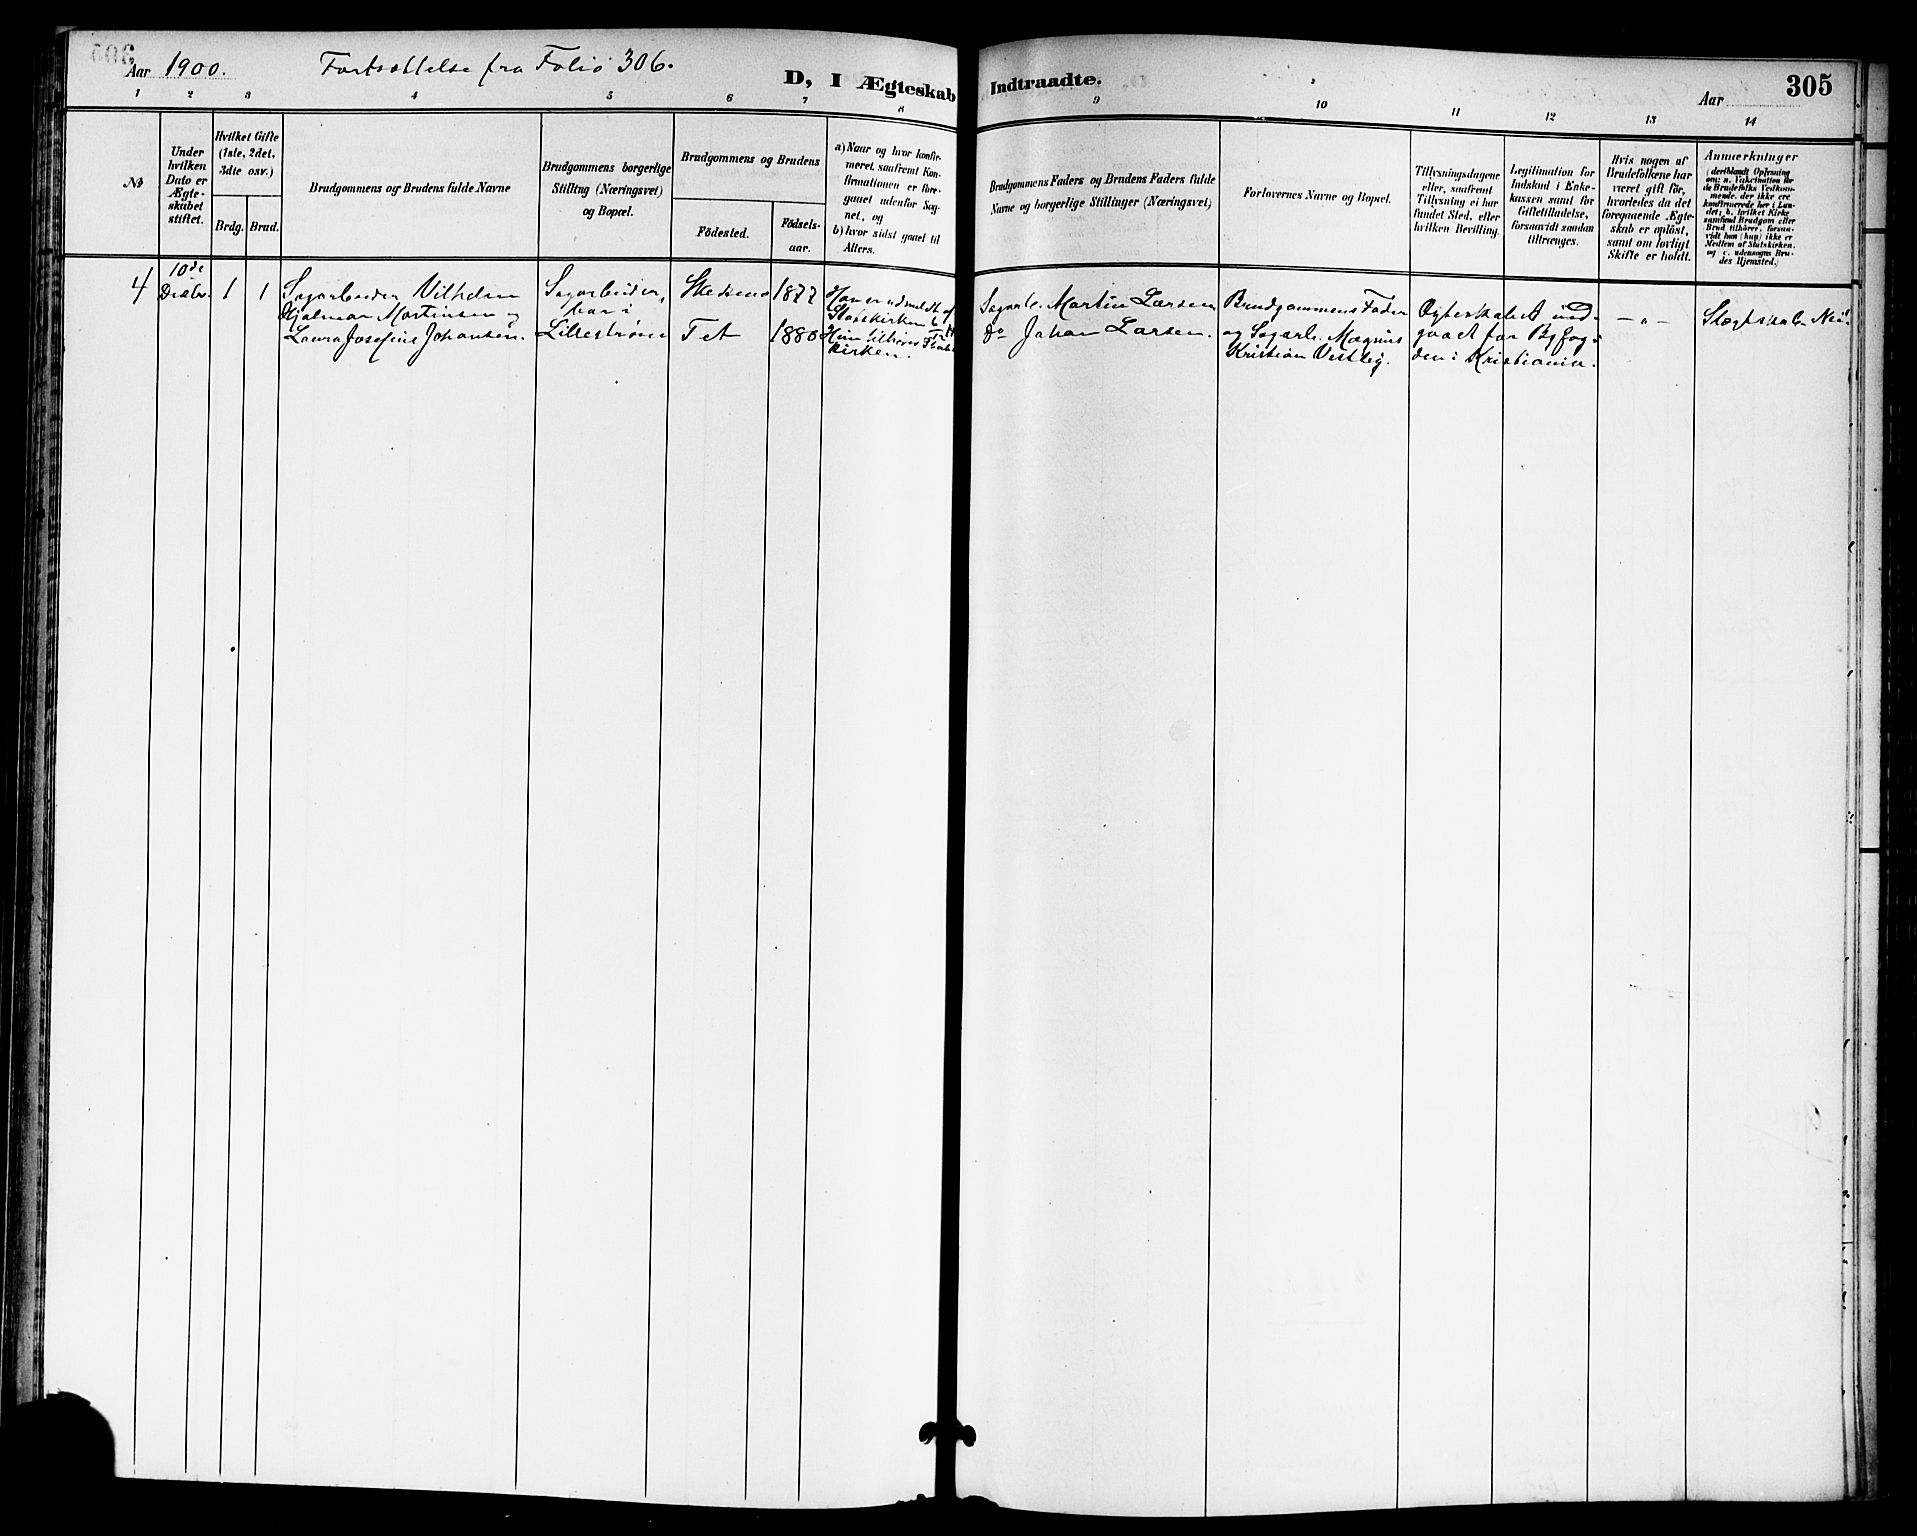 Aar 1900. Fortsættelse fra Folio 306.
D, I Ægteskab Indtraadte.
Aar
305
1 2 3 4 5 6 7 8 9 10 11 12 13 14
No
Under
hvilken
Dato er
Ægte-
skabet
stiftet.
Hvilket Gifte
(1ste, 2det,
3die osv.)
Brdg. Brud.
Brudgommens og Brudens fulde Navne
Brudgommens borgerlige
Stilling (Næringsvei)
og Bopæl.
Brudgommens og Brudens
Födested.
Födsels-
aar.
a) Naar og hvor konfir-
meret, saafremt Kon-
firmationen er fore-
gaaet udenfor Sog-
net, og
b) hvor sidst gaaet til
Alters.
Brudgommens Faders og Brudens Faders fulde
Navne og borgerlige Stillinger (Næringsvei)
Forlovernes Navne og Bopæl.
Tillysningsdagene
eller, saafremt
Tillysning ei har
fundet Sted, efter
hvilken Bevilling.
Legitimation for
Indskud i Enke-
kassen samt for
Giftetilladelse,
forsaavidt saadan
tiltrænges.
Hvis nogen af
Brudefolkene har
været gift för,
hvorledes da det
foregaaende Ægte-
skab er oplöst,
samt om lovligt
Skifte er holdt.
Anmærkninger
(deriblandt Oplysning
om: a. Vakcination for
de Brudefolks Vedkom-
mende, der ikke ere
konfirmerede her i Lan-
det; b. hvilket Kirke
samfund Brudgom eller
Brud tilhörer, forsaa-
vidt han (hun) ikke er
Medlem af Statskirken,
og c. udensogns Bru-
des Hjemsted.)
4
10de
Decbr.
1 1
Sagarbeider Vilhelm
Hjalmar Martinsen og
Laura Josefine Johansen.
Sagarbeider,
bor i
Lillestrøm
Skedsmo
Fet
1877
1880
Han er udmeldt af
Statskirken
Hun tilhører Stats
kirken.
Sagarb. Martin Larsen
Do Johan Larsen.
Brudgommens Fader
og Sagarb. Magnus
Kristian Vestby.
Ægteskabet ind-
gaaet for Byfog-
den i Kristiania.
- " -
Slægtskab Nei!